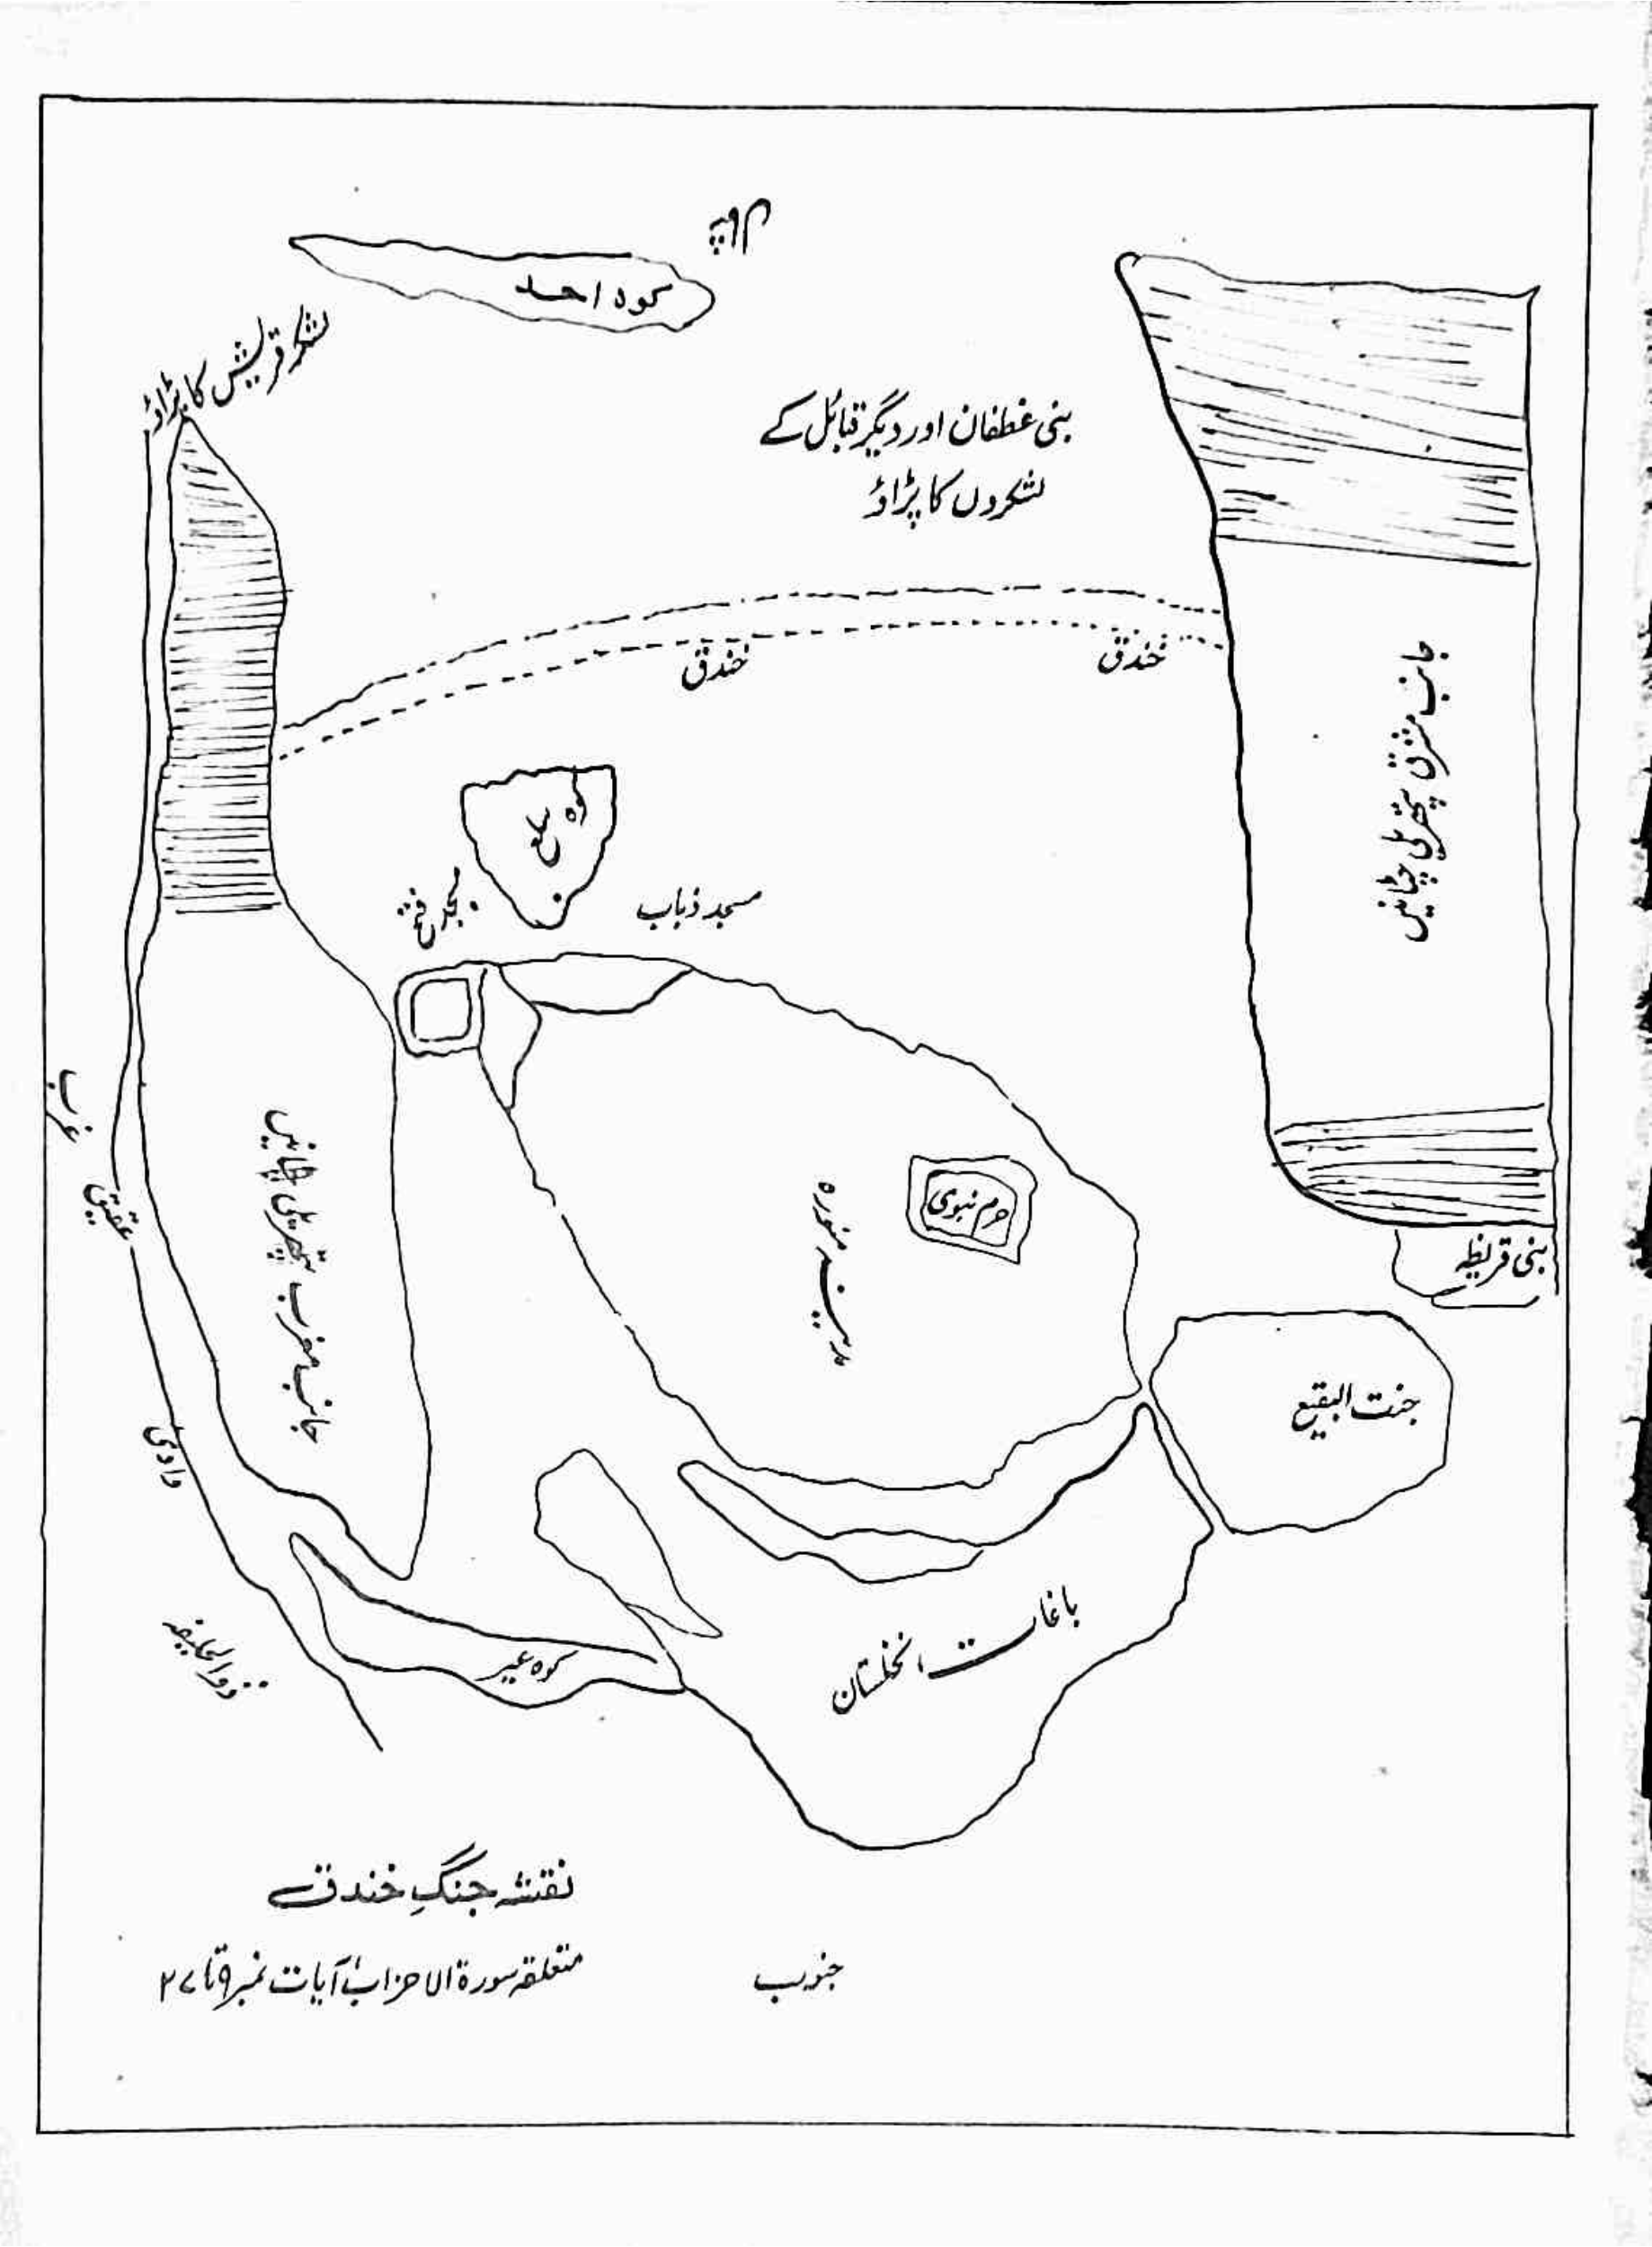 کوہ احد
لشکر قریش کا پڑاؤ
بنی غطفان اور دیگر قبائل کے
لشکروں کا پڑاؤ
خندق
خندق
جانب مشرق پتھریلی چٹانیں
کوہ سلع
مسجد ذباب
غرب
عقیق
وادی
جانب مغرب پتھریلی چٹانیں
مدینہ منورہ
حرم نبوی
بنی قریظہ
جنت البقیع
باغات نخلستان
کوہ عیر
ذوالحلیفہ
نقشہ جنگِ خندق
متعلقہ سورۃ الاحزاب آیات نمبر ۹ تا ۲۷
جنوب